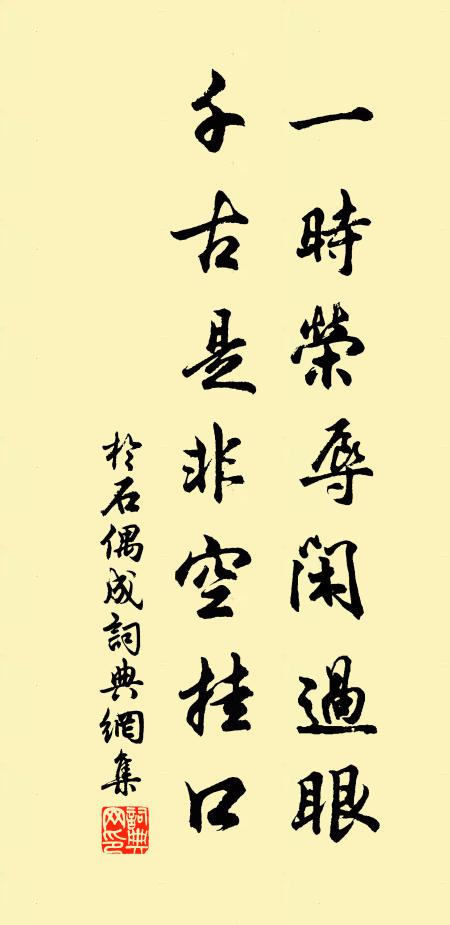 一時榮辱閑過眼
千古是非空挂口
於石偶成詞典網集
詞典
網印